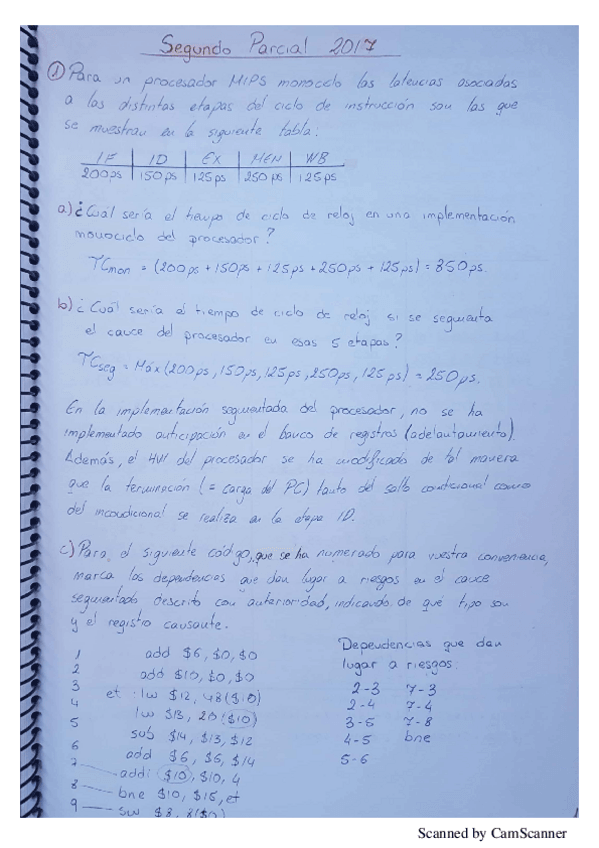 Segundo Parcial 2017
① Para un procesador MIPS monociclo las latencias asociadas
a las distintas etapas del ciclo de instrucción son las que
se muestran en la siguiente tabla:
IF | ID | EX | MEN | WB
200ps | 150ps | 125ps | 250ps | 125ps
a) ¿Cuál sería el tiempo de ciclo de reloj en una implementación
monociclo del procesador?
TCmon = (200ps + 150ps + 125ps + 250ps + 125ps) = 850ps.
b) ¿Cuál sería el tiempo de ciclo de reloj si se segmenta
el cauce del procesador en esas 5 etapas?
TCseg = Máx(200ps, 150ps, 125ps, 250ps, 125ps) = 250ps.
En la implementación segmentada del procesador, no se ha
implementado anticipación en el banco de registros (adelantamiento).
Además, el HW del procesador se ha modificado de tal manera
que la terminación (= carga del PC) tanto del salto condicional como
del incondicional se realiza en la etapa ID.
c) Para el siguiente código, que se ha numerado para vuestra conveniencia,
marca las dependencias que dan lugar a riesgos en el cauce
segmentado descrito con anterioridad, indicando de qué tipo son
y el registro causante.
1 add $6, $0, $0
2 add $10, $0, $0
3 et: lw $12, 48($10)
4 lw $13, 20($10)
5 sub $14, $13, $12
6 add $6, $6, $14
7 addi $10, $10, 4
8 bne $10, $15, et
9 sw $8, 8($0)
Dependencias que dan
lugar a riesgos:
2-3 7-3
2-4 7-4
3-5 7-8
4-5 bne
5-6
Scanned by CamScanner